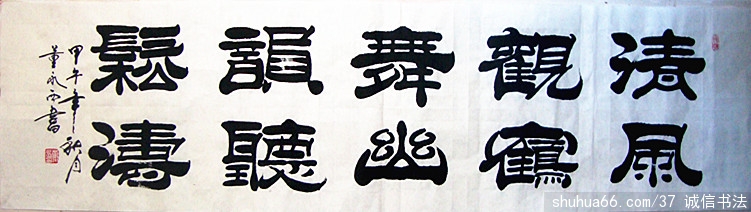 清風
觀鶴
舞幽
韻聽
鬆濤
甲午年秋月
董永西書
shuhua66.com/37 诚信书法